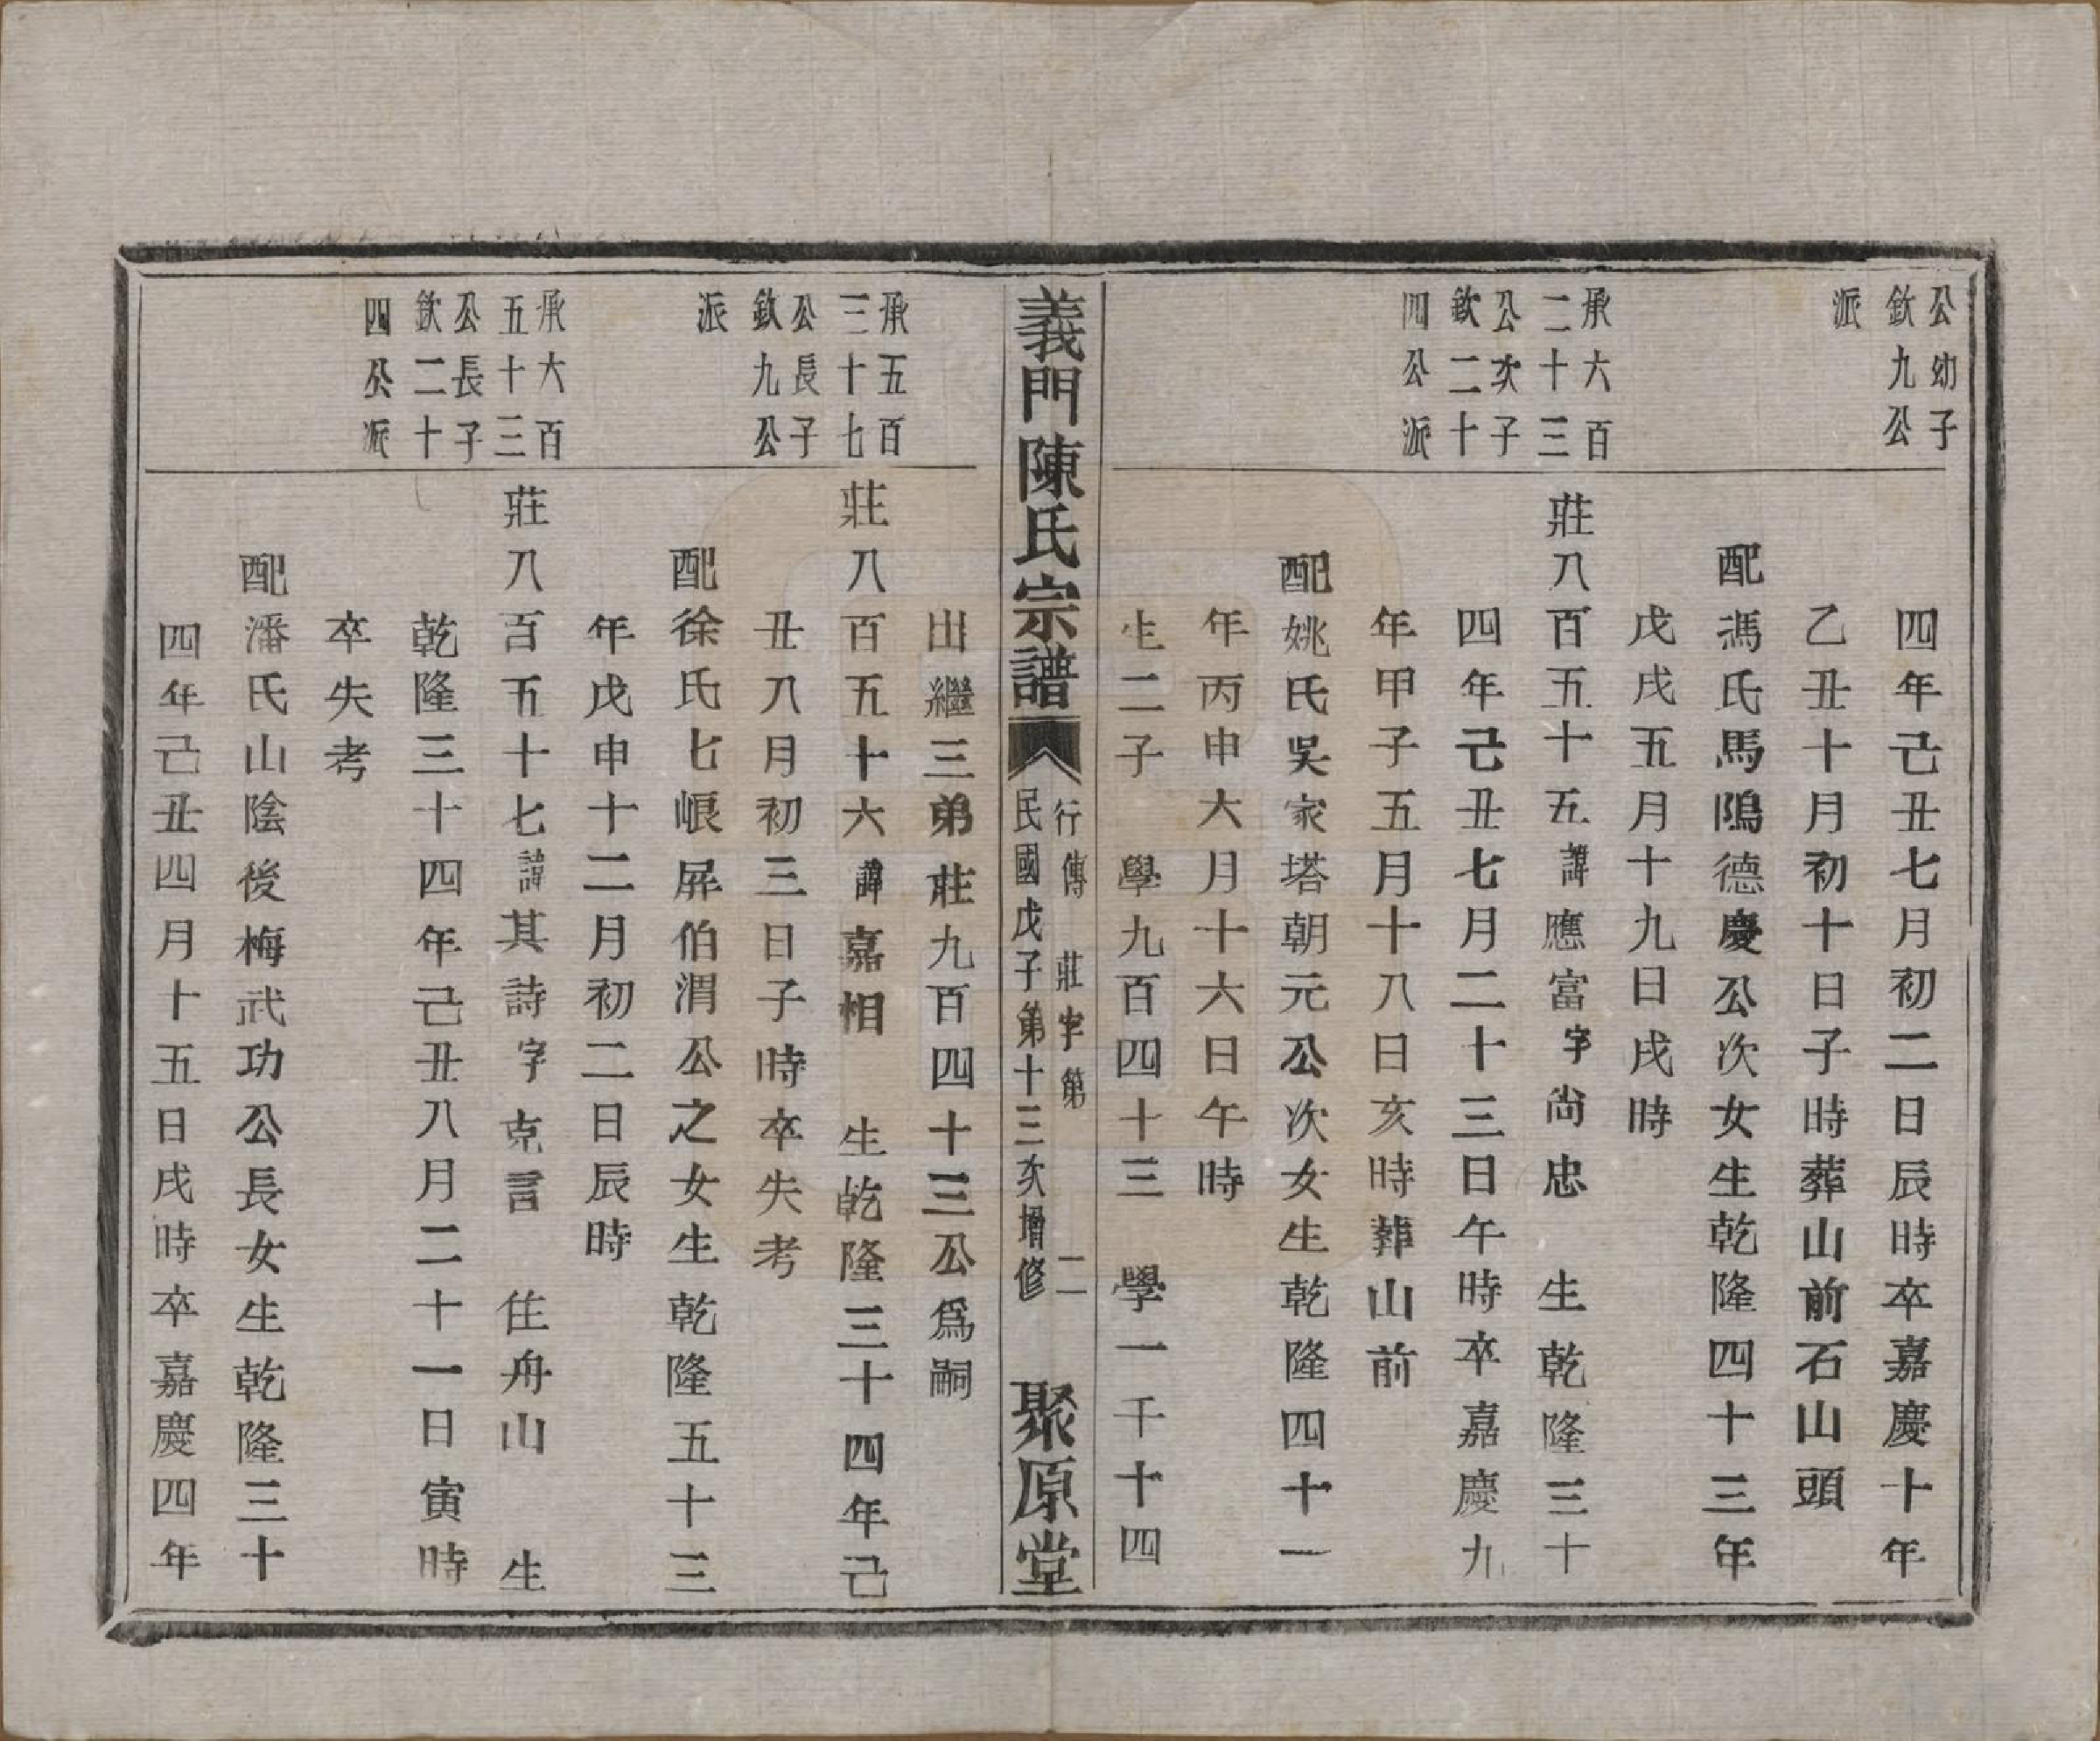 公幼子
欽九公
派
四年己丑七月初二日辰時卒嘉慶十年
乙丑十月初十日子時葬山前石山頭
配馮氏馬隝德慶公次女生乾隆四十三年
戊戌五月十九日戌時
承六百
二十三
公次子
欽二十
四公派
莊八百五十五諱應富字尚忠 生乾隆三十
四年己丑七月二十三日午時卒嘉慶九
年甲子五月十八日亥時葬山前
配姚氏吳家塔朝元公次女生乾隆四十一
年丙申六月十六日午時
生二子 學九百四十三 學一千十四
義門陳氏宗譜
行傳 莊字第 二
民國戊子第十三次增修
聚原堂
出繼三弟莊九百四十三公爲嗣
承五百
三十七
公長子
欽九公
派
莊八百五十六諱嘉相 生乾隆三十四年己
丑八月初三日子時卒失考
配徐氏七㟍屏伯渭公之女生乾隆五十三
年戊申十二月初二日辰時
承六百
五十三
公長子
欽二十
四公派
莊八百五十七諱其詩字克言 住舟山 生
乾隆三十四年己丑八月二十一日寅時
卒失考
配潘氏山陰後梅武功公長女生乾隆三十
四年己丑四月十五日戌時卒嘉慶四年